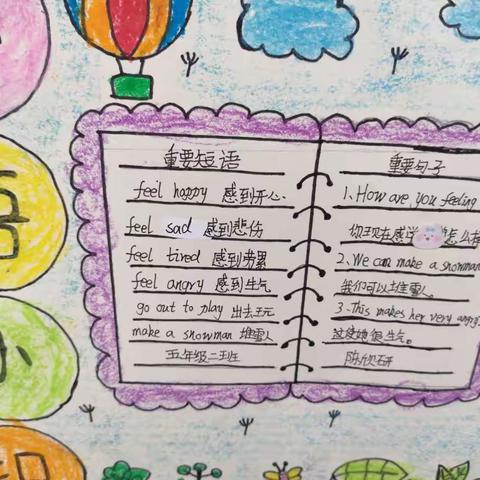 语
小
重要短语
feel happy 感到开心.
feel sad 感到悲伤
feel tired 感到劳累
feel angry 感到生气
go out to play 出去玩
make a snowman 堆雪人
五年级二班
重要句子
1. How are you feeling
你现在感觉怎么样
2. We can make a snowman
我们可以堆雪人。
3. This makes her very angry.
这使她很生气。
陈欣研